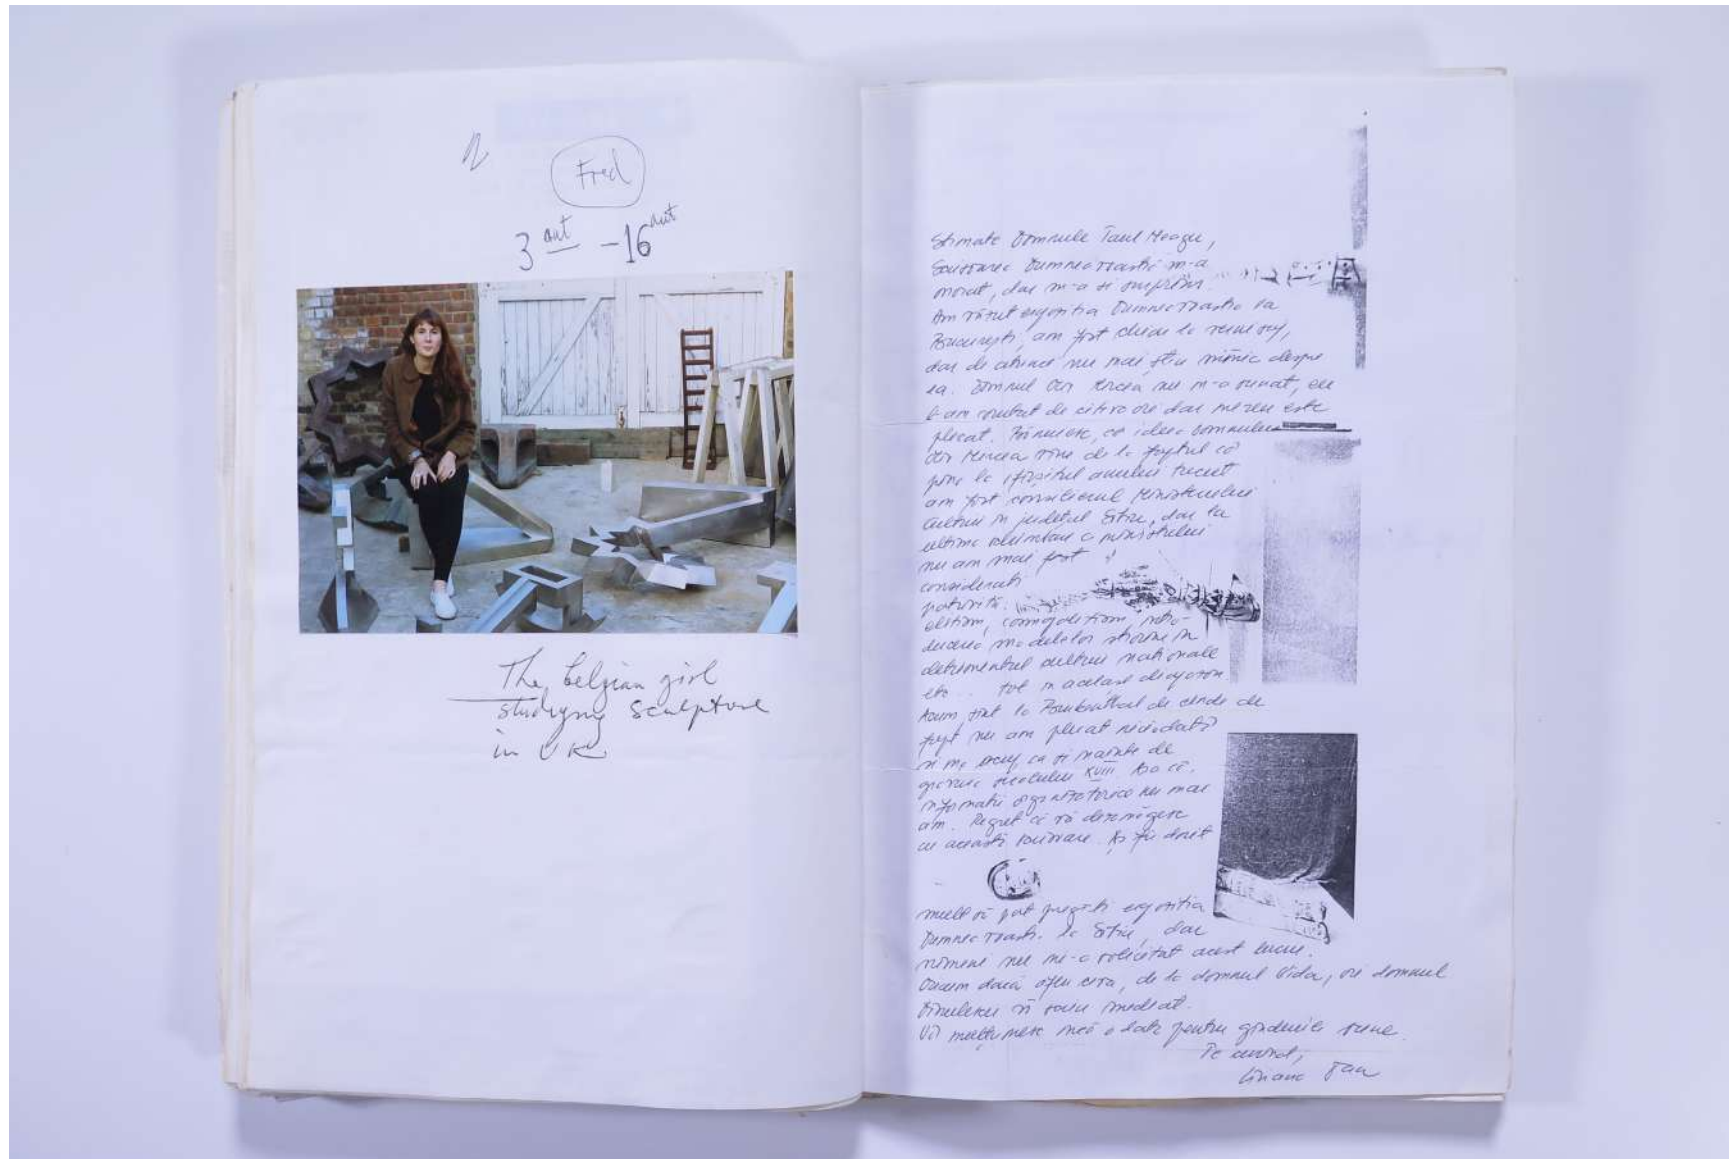 Fred
3 aut - 16 aut
The belgian girl
studying sculpture
in UK
Stimate Domnule Paul Neagu,
Scrisoarea Dumneavoastră m-a
onorat, dar m-a și surprins.
Am văzut expoziția Dumneavoastră la
București, am fost chiar la vernisaj,
dar de atunci nu mai știu nimic despre
ea. Domnul Mircea nu m-a sunat, eu
l-am căutat de cîteva ori dar mereu este
plecat. Bănuiesc, că ideea domnului
Mircea vine de la faptul că
pînă la sfîrșitul anului trecut
am fost consilierul Ministerului
Culturii în județul Sibiu, dar la
ultima schimbare a ministrului
nu am mai fost
considerați
potriviți.
elitism, cosmopolitism, intro-
ducerea modelelor străine în
detrimentul culturii naționale
etc... tot în același diapazon
Acum sînt la Brukenthal de unde de
fapt nu am plecat niciodată
și mă ocup ca și înainte de
gravura secolului XVIII. Așa că,
informații organizatorice nu mai
am. Regret că vă dezamăgesc
cu această scrisoare. Aș fi dorit
mult să pot pregăti expoziția
Dumneavoastră la Sibiu, dar
nimeni nu mi-a solicitat acest lucru.
Oricum dacă aflu ceva, de la domnul Vida, ori domnul
vă scriu imediat.
Vă mulțumesc încă o dată pentru gîndurile bune.